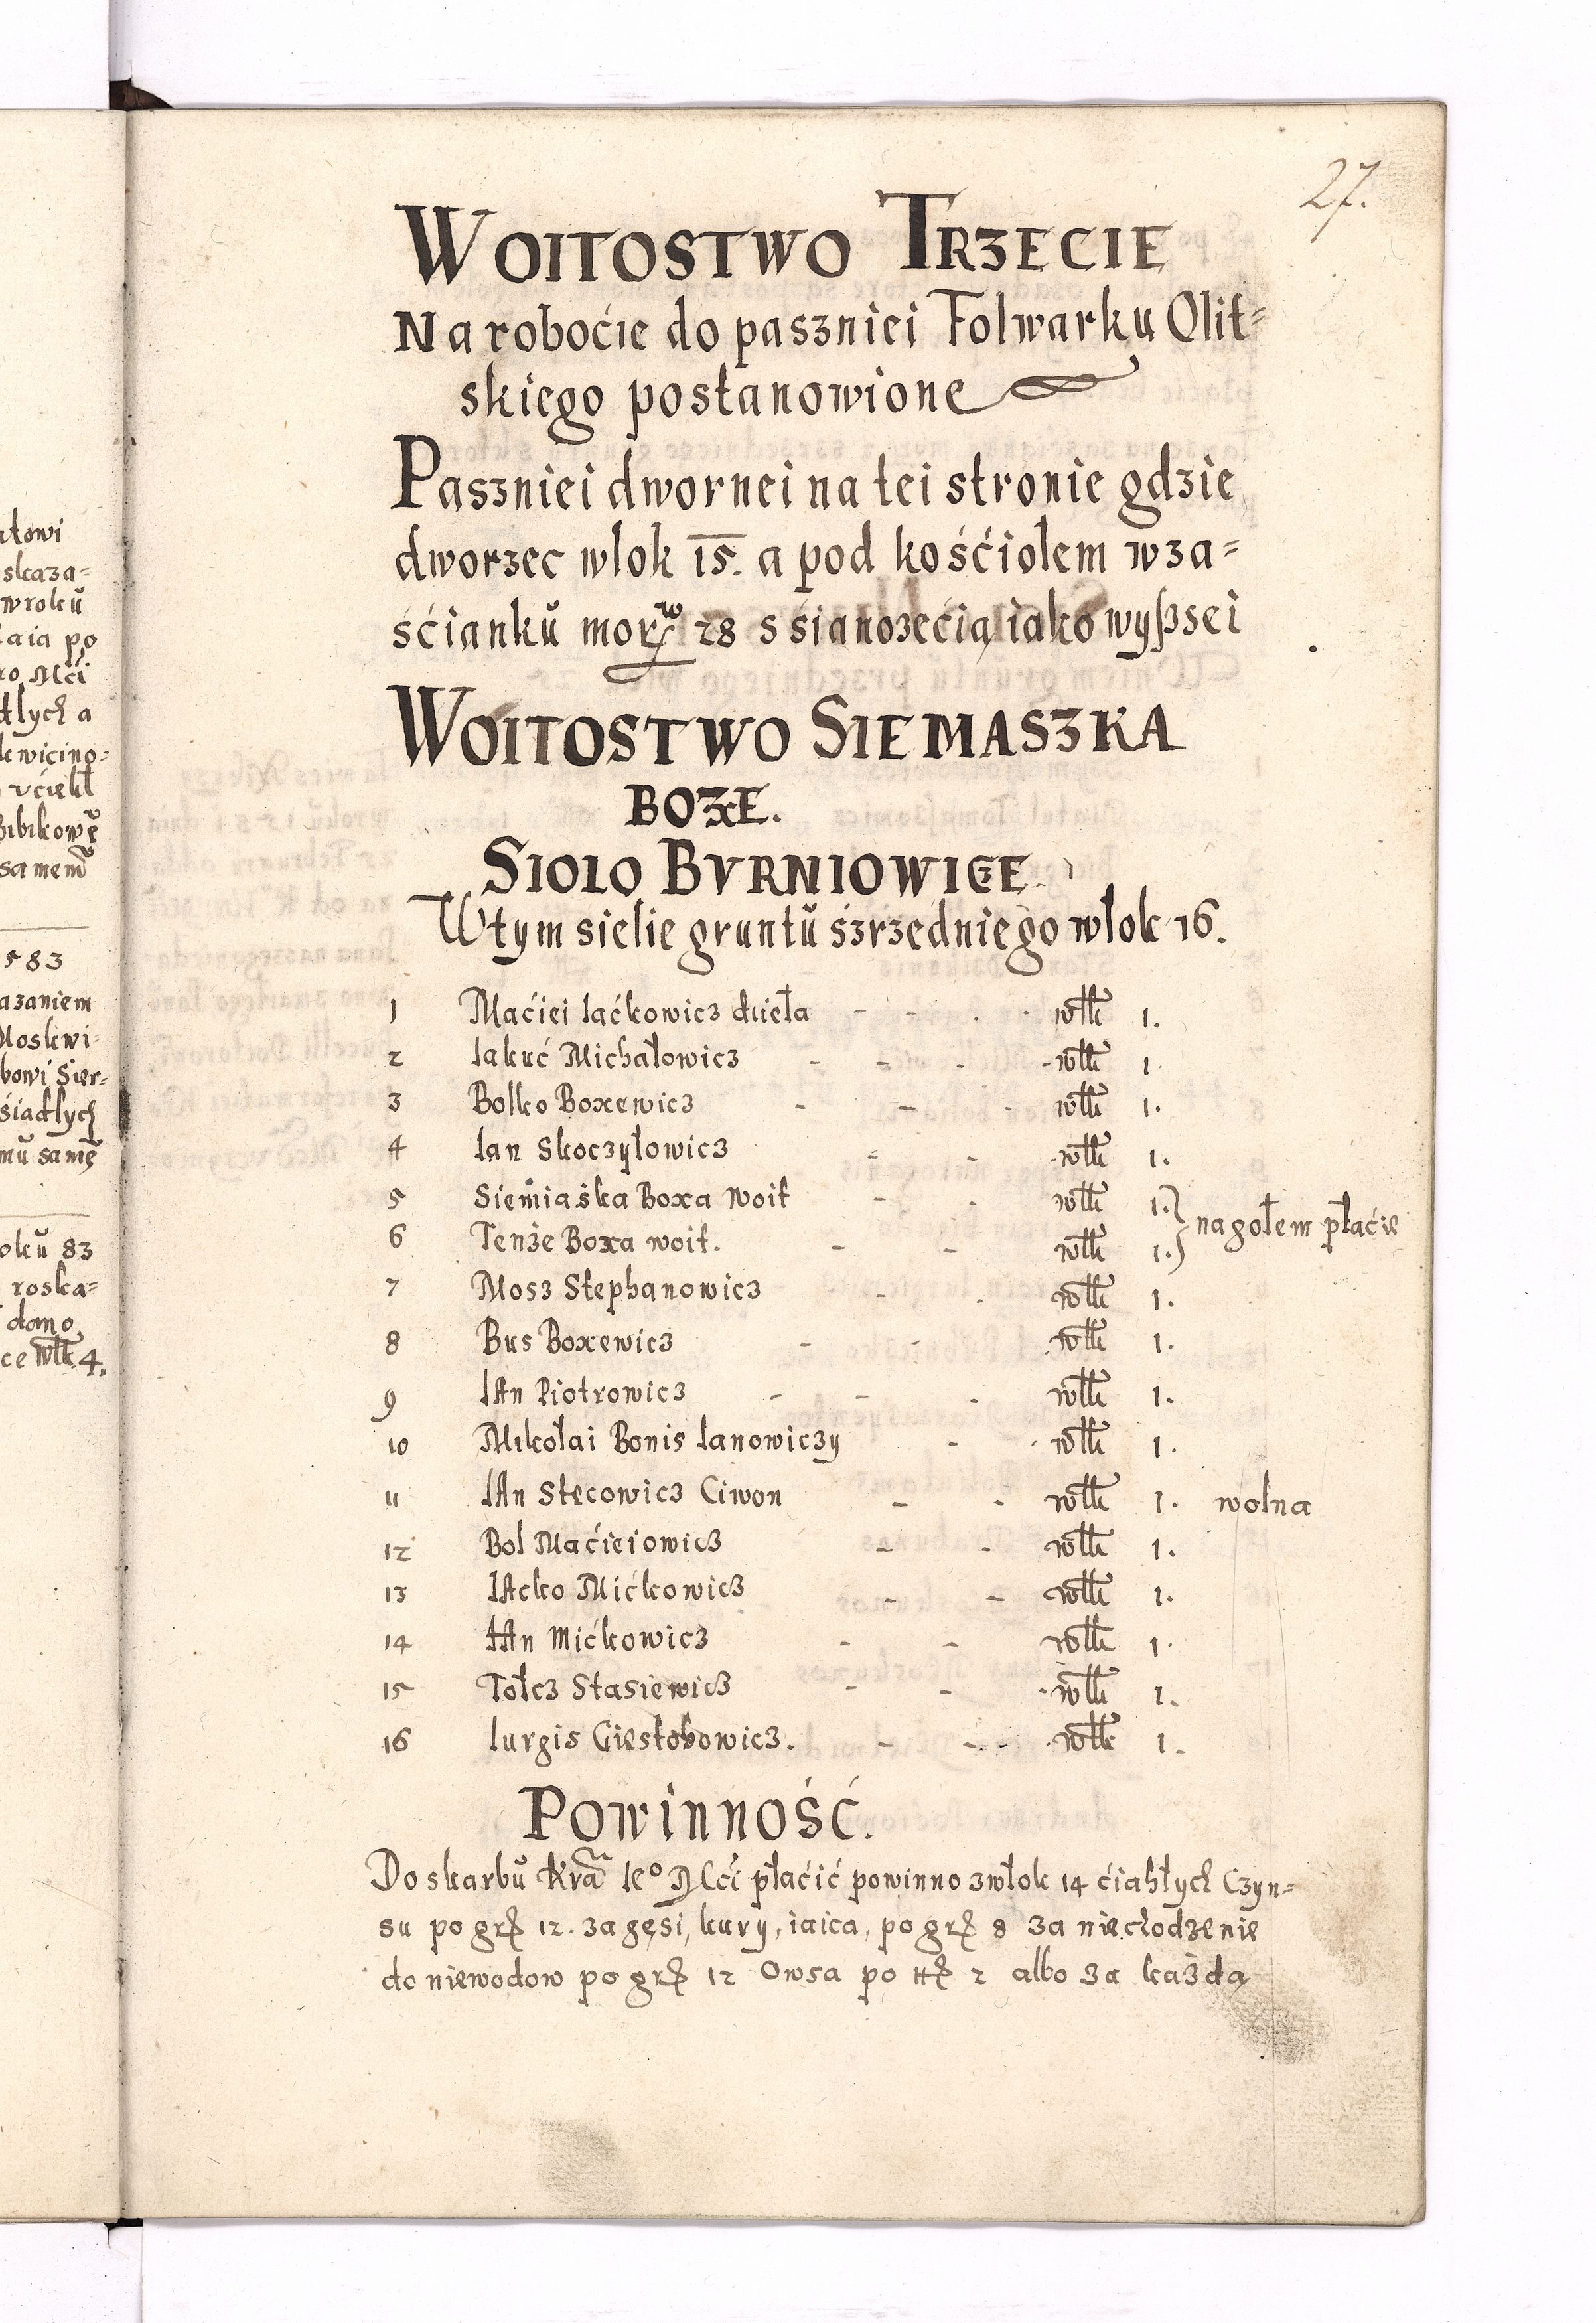 27.
WOITOSTWO TRZECIE
Na roboćie do paszniei Folwarku Olit=
skiego postanowione
Paszniei dwornei na tei stronie gdzie
dworzec wlok 15. a pod kośćiolem w za=
śćiankŭ morẜ 28 s sianożęćią iako wyßsei
WOITOSTWO SIEMASZKA
BOXE.
SIOLO BVRNIOWICE
W tym sielie gruntŭ śzrzedniego wlok 16.
1 Maćiei Iaćkowicz dzieła - - - - włk 1.
2 Iakuć Michałowicz - - - - włk 1
3 Bolko Boxewicz - - - włk 1.
4 Ian Skoczyłowicz - - - włk 1.
5 Siemiaśka Boxa woit - - włk 1.
6 Tenże Boxa woit. - - włk 1. na gołem płaćie
7 Mosz Stephanowicz - - włk 1.
8 Bus Boxewicz - - włk 1.
9 IAn Piotrowicz - - - włk 1.
10 Mikołai Bonis Ianowiczy - - włk 1.
11 IAn Stecowicz Ciwon - - włk 1. wolna
12 Bol Maćieiowicz - - włk 1.
13 IAcko Mićkowicz - - włk 1.
14 IAn Mićkowicz - - włk 1.
15 Tołcz Stasiewicz - - - włk 1.
16 Iurgis Giestołowicz. - - - włk 1.
POWINNOŚĆ.
Do skarbŭ Kra Ieº Mći płaćić powinno z włok 14 ćiahłych Czyn=
su po grẜ 12. za gęsi, kury, iaica, po grẜ 8 za niechodzenie
do niewodow po grẜ 12 Owsa po 2 albo za każdą
atowi
skaza=
w rokŭ
taia po
ro Mći
dłych a
kewicino=
vciekł
Bibikowę
samemŭ
583
azaniem
Moskwi
bowi Sier=
śiadłych
mŭ samę
okŭ 83
roska=
dano
ce włk 4.